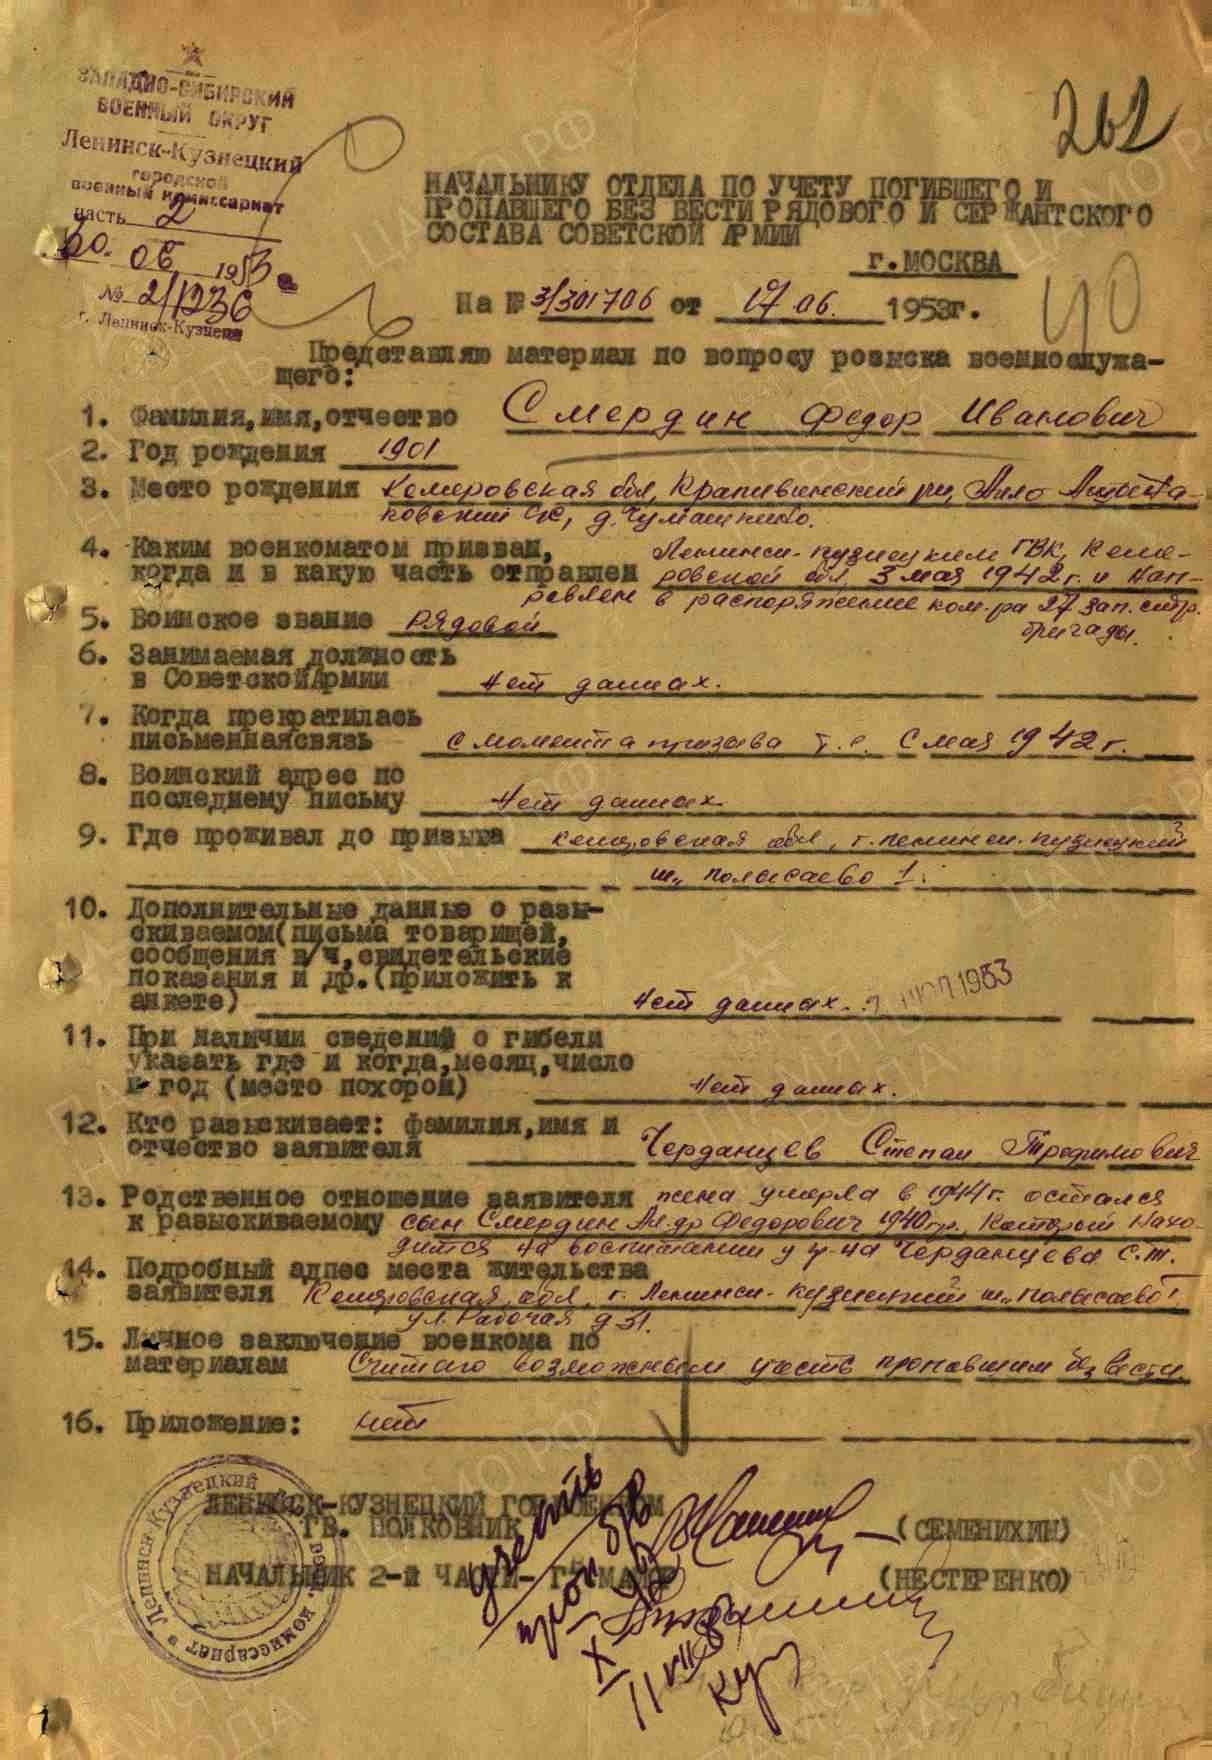 ЗАПАДНО-СИБИРСКИЙ
ВОЕННЫЙ ОКРУГ
Ленинск-Кузнецкий
городской
военный комиссариат
часть 2
30. 06 1953 г.
№ 2/1236
г. Ленинск-Кузнецк
262
НАЧАЛЬНИКУ ОТДЕЛА ПО УЧЕТУ ПОГИБШЕГО И
ПРОПАВШЕГО БЕЗ ВЕСТИ РЯДОВОГО И СЕРЖАНТСКОГО
СОСТАВА СОВЕТСКОЙ АРМИИ
г. МОСКВА
На № 3/301706 от 17 06. 1953г.
Представляю материал по вопросу розыска военнослужа-
щего:
1. Фамилия, имя, отчество Смердин Федор Иванович
2. Год рождения 1901
3. Место рождения Кемеровская обл, Крапивинский
ковский С/С, д.
4. Каким военкоматом призван, Ленинск-Кузнецким ГВК, Кеме-
когда и в какую часть отправлен ровской обл. 3 мая 1942 г. и нап-
равлен в распоряжение ком-ра 27 зап. стр.
бригады.
5. Воинское звание рядовой
6. Занимаемая должность
в Советской Армии Нет данных.
7. Когда прекратилась
письменная связь с момента призыва т.е. с мая 1942 г.
8. Воинский адрес по
последнему письму Нет данных
9. Где проживал до призыва Кемеровская обл, г. Ленинск-Кузнецкий
ш. Полысаево 1.
10. Дополнительные данные о разы-
скиваемом (письма товарищей,
сообщения в/ч, свидетельские
показания и др. (приложить к
анкете) Нет данных. 1953
11. При наличии сведений о гибели
указать где и когда, месяц, число
и год (место похорон) Нет данных.
12. Кто разыскивает: фамилия, имя и
отчество заявителя Черданцев Степан Трофимович
13. Родственное отношение заявителя жена умерла в 1944 г. остался
к разыскиваемому сын Смердин Ал-др Федорович 1940 г.р., который нахо-
дится на воспитании у гр-на Черданцева С.Т.
14. Подробный адрес места жительства
заявителя Кемеровская обл. г. Ленинск-Кузнецкий ш. Полысаево 1
ул. Рабочая д 31.
15. Личное заключение военкома по
материалам Считаю возможным учесть пропавшим без вести.
16. Приложение: нет
ЛЕНИНСК-КУЗНЕЦКИЙ ГОРВОЕНКОМ
ГВ. ПОЛКОВНИК (СЕМЕНИХИН)
НАЧАЛЬНИК 2-й ЧАСТИ- ГВ. МАЙОР (НЕСТЕРЕНКО)
учесть
проп б/в